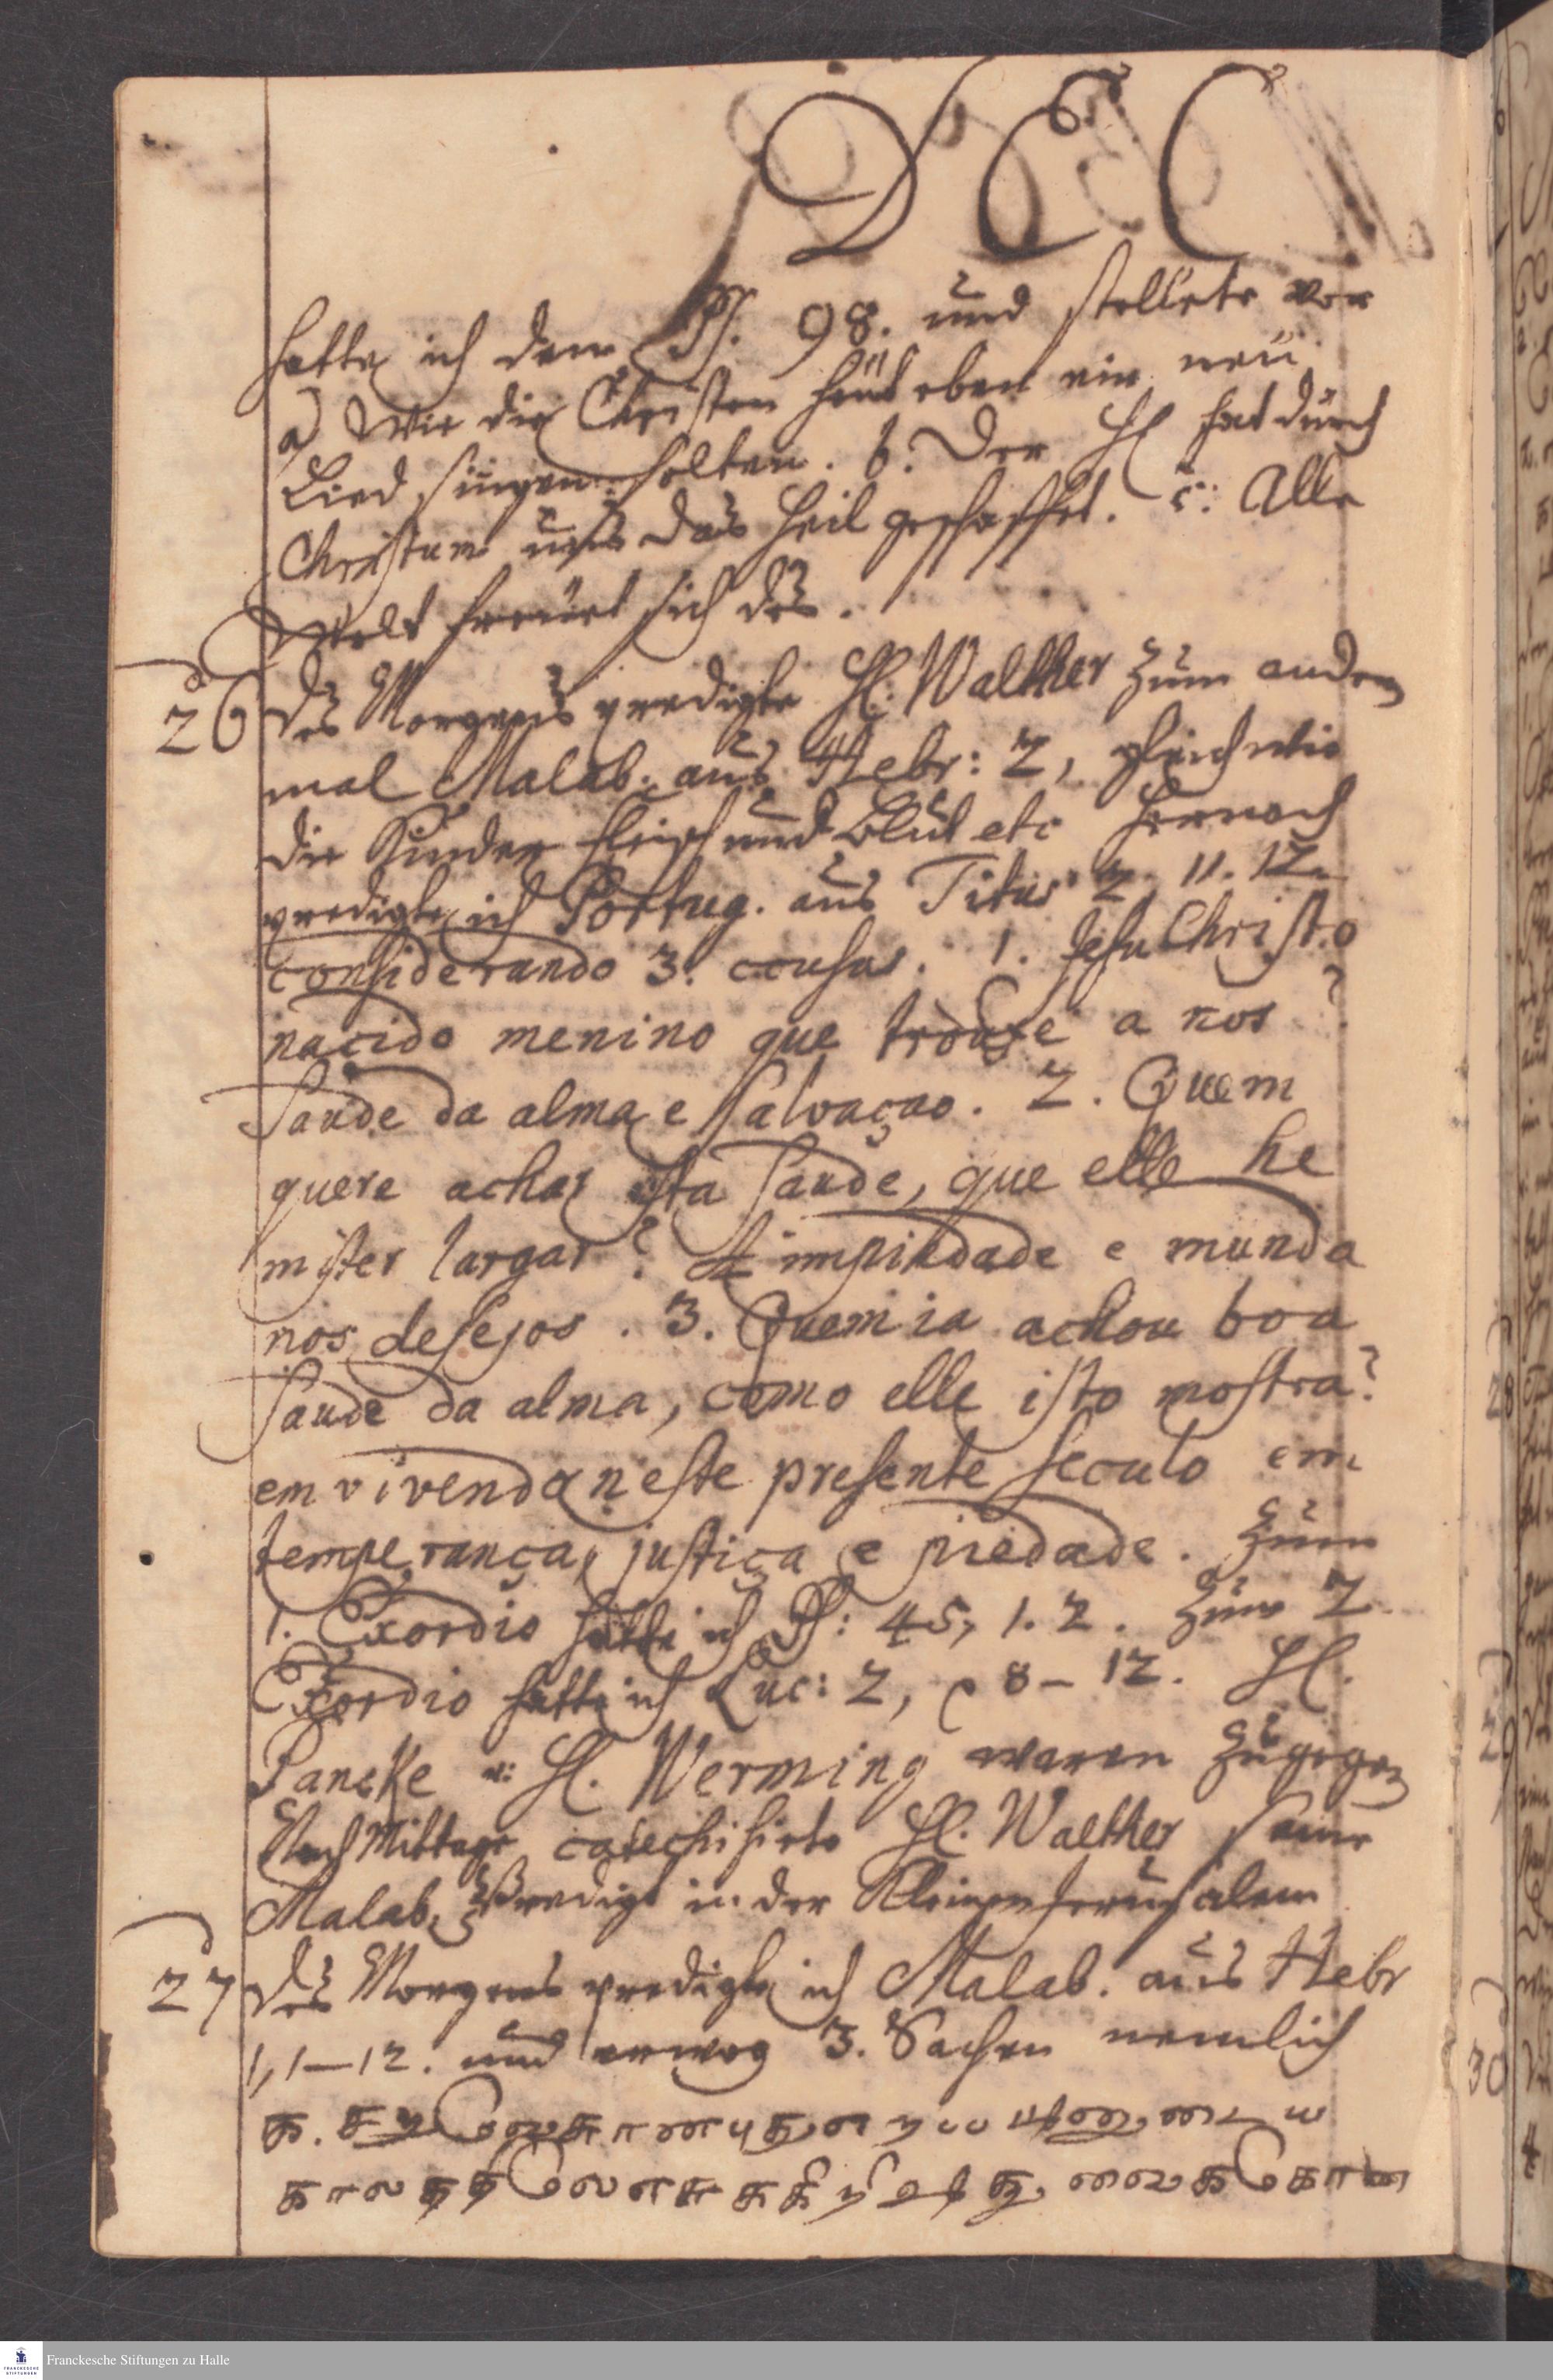 DEC
hatte ich den Ps. 98. und stellete vor
a) Wie die Christen heüt eben ein neü
Lied singen solten. b. Der H hat durch
Christum uns das Heil geschaffet. c: Alle
Welt freüet sich des.
26 Des Morgens predigte H. Walther zum andern
mal Malab. aus Hebr: 2, gleich wie
die Kinder fleisch und Blut etc hernach
predigte ich Portug. aus Titus 2, 11. 12.
considerando 3. cousas. 1. Jesu Christo
nacido menino que trouxe a nos?
Saude da alma e salvaçao. 2. Quem
quere achar esta saude, que elle he
mister largar? A impiedade e munda
nos desejos. 3. Quem ia achou boa
saude da alma, como elle isto mostra?
em vivendo neste presente seculo em
temperança, justiça e piedade. Zum
1. Exordio hatte ich Ps: 45, 1. 2. Zum 2
Exordio hatte ich Luc: 2, 8-12. H.
Pancke u: H. Werming waren zugegen
Nach Mittage catechisirte H. Walther seine
Malab. Predigt in der Kleinen Jerusalem
27 Des Morgens predigte ich Malab. aus Hebr
1, 1-12. und erwog 3. Sachen nemlich